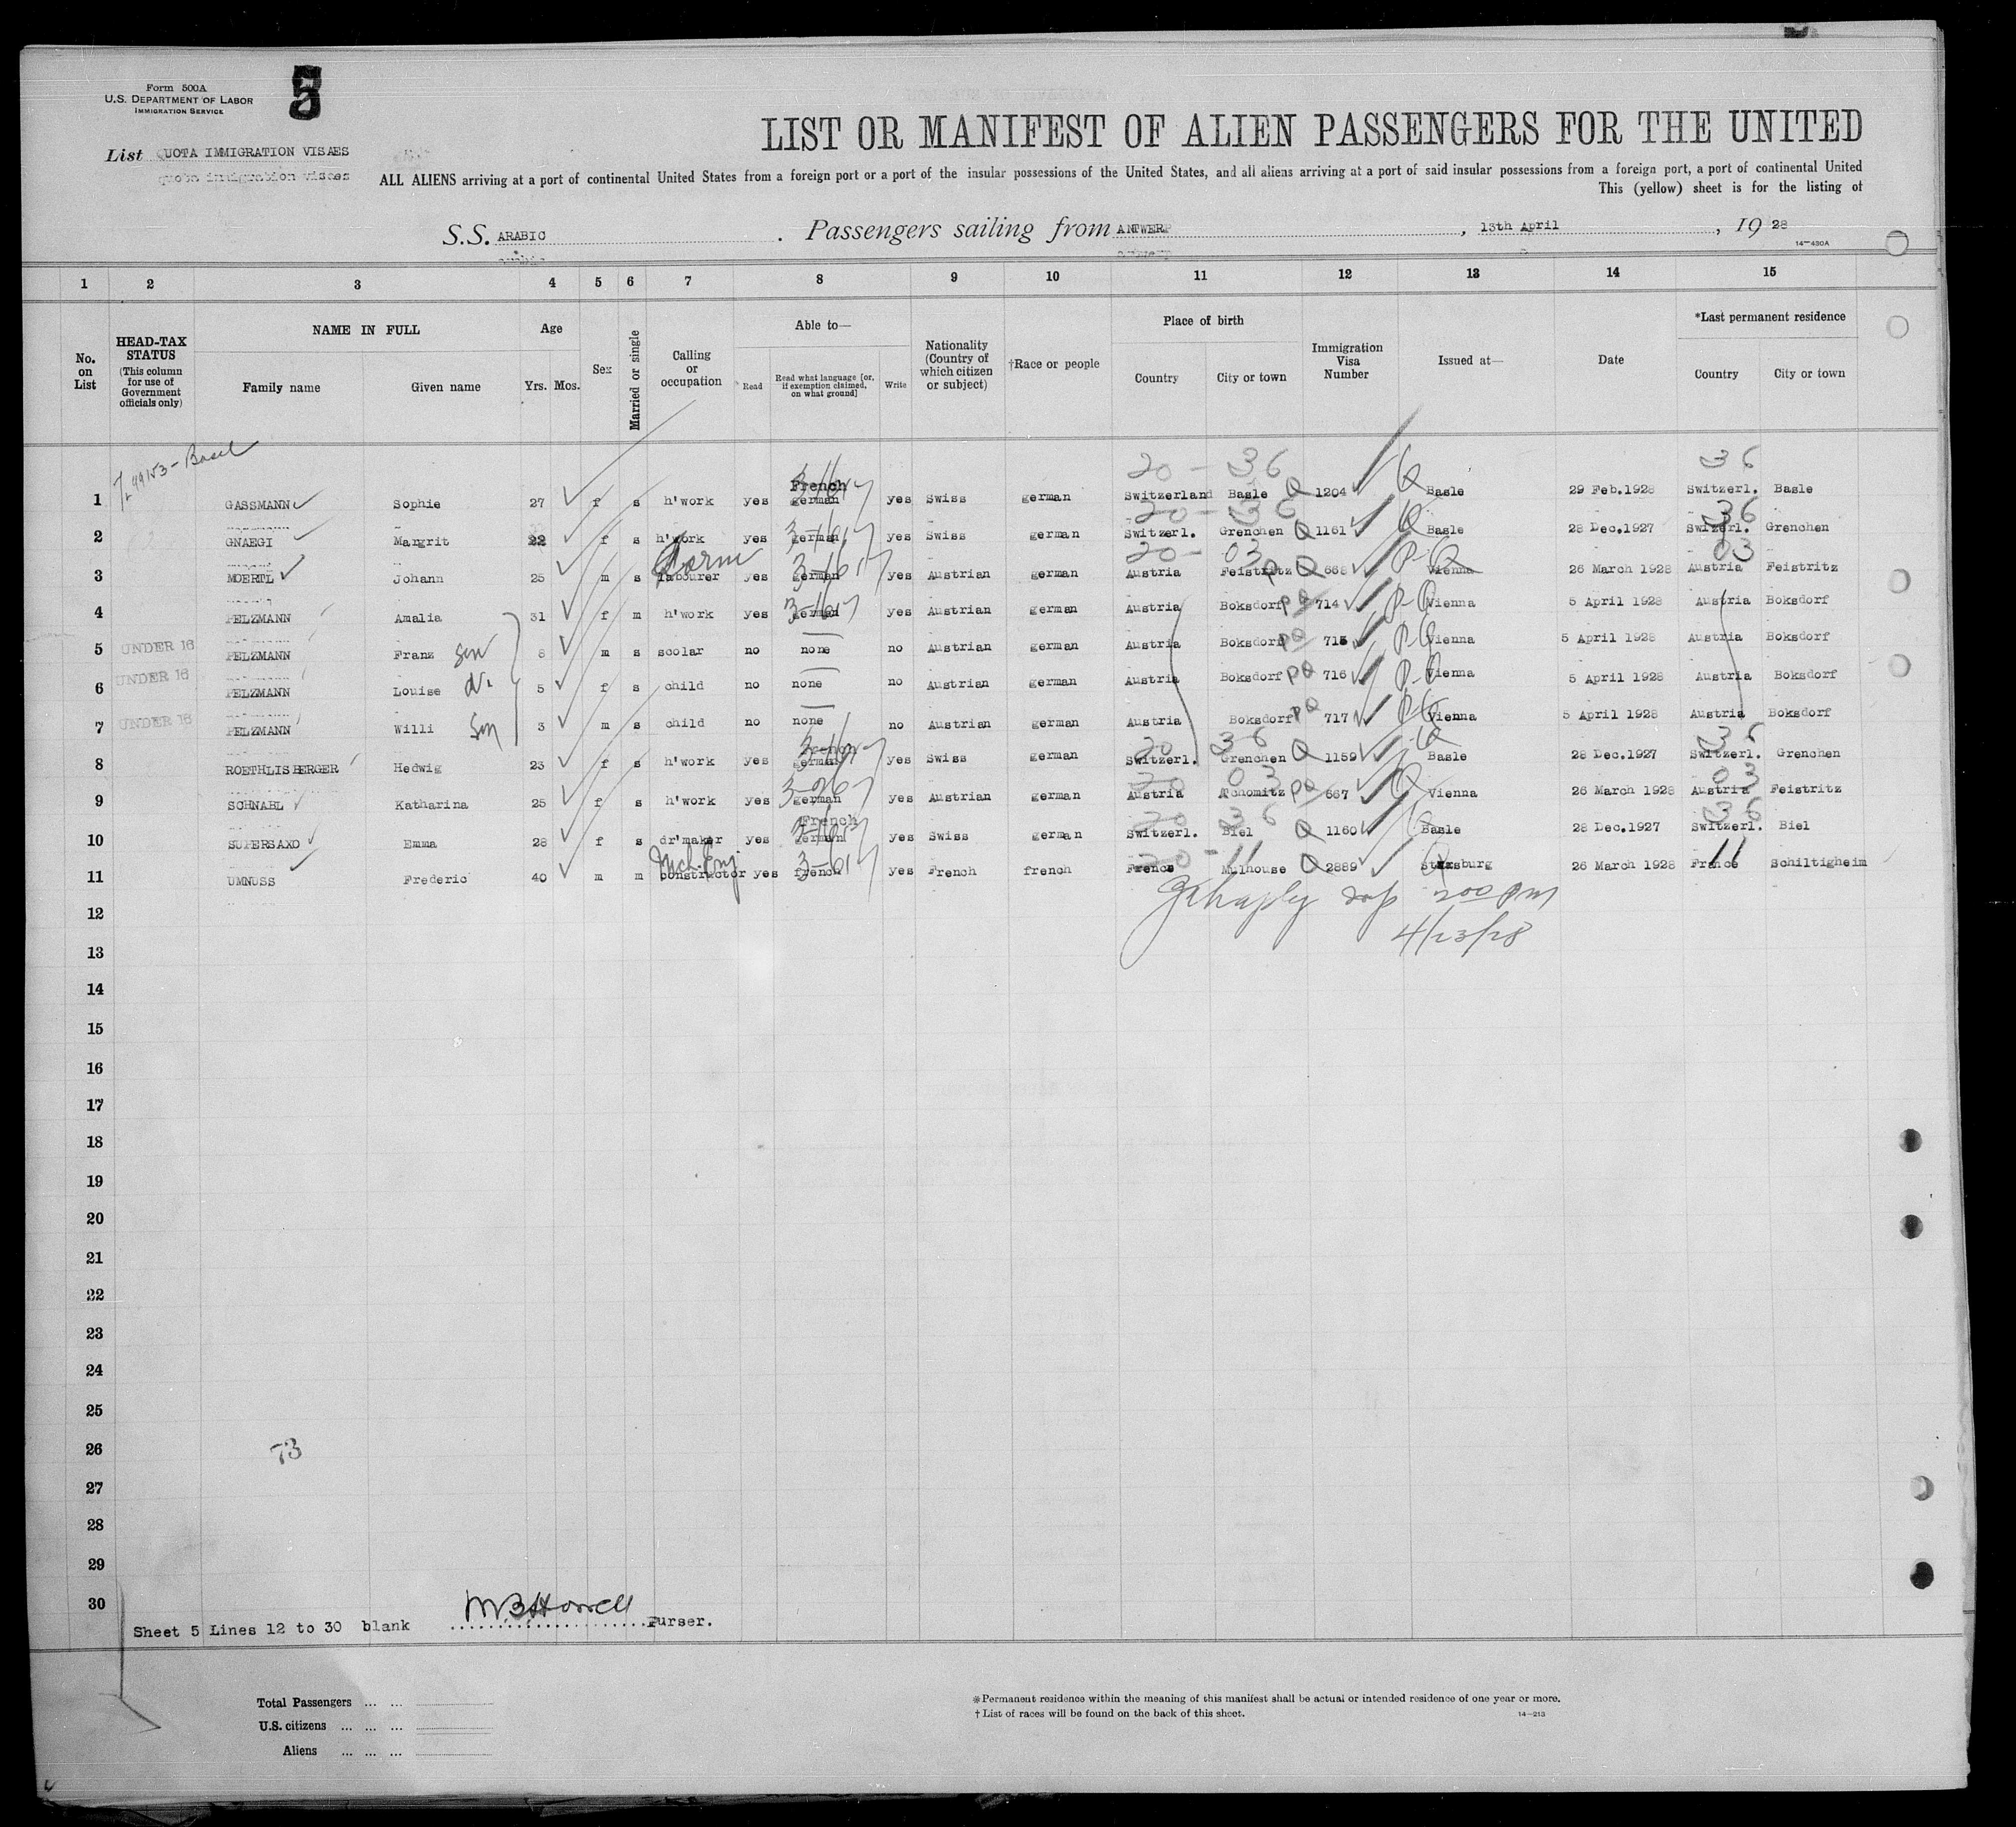 Form 500A
U.S. DEPARTMENT OF LABOR
IMMIGRATION SERVICE
5
LIST OR MANIFEST OF ALIEN PASSENGERS FOR THE UNITED
List QUOTA IMMIGRATION VISAES
quota immigration visaes
ALL ALIENS arriving at a port of continental United States from a foreign port or a port of the insular possessions of the United States, and all aliens arriving at a port of said insular possessions from a foreign port, a port of continental United
This (yellow) sheet is for the listing of
S.S. ARABIC . Passengers sailing from ANTWERP , 13th April , 19 28
14—430A
1 2 3 4 5 6 7 8 9 10 11 12 13 14 15
No. on List
HEAD-TAX STATUS (This column for use of Government officials only)
NAME IN FULL
Family name Given name
Age
Yrs. Mos.
Sex
Married or single
Calling or occupation
Able to—
Read Read what language [or, if exemption claimed, on what ground] Write
Nationality (Country of which citizen or subject)
†Race or people
Place of birth
Country City or town
Immigration Visa Number
Issued at—
Date
*Last permanent residence
Country City or town
20 - 36 36
1 GASSMANN Sophie 27 f s h'work yes French german yes Swiss german Switzerland Basle Q 1204 Q Basle 29 Feb.1928 Switzerl. Basle
20 - 36 36
2 GNAEGI Margrit 22 f s h'work yes german yes Swiss german Switzerl. Grenchen Q 1161 Q Basle 28 Dec.1927 Switzerl. Grenchen
20 - 03 03
3 MOERTL Johann 25 m s Farm labourer yes german yes Austrian german Austria Feistritz Q 668 P-Q Vienna 26 March 1928 Austria Feistritz
4 PELZMANN Amalia 31 f m h'work yes german yes Austrian german Austria Boksdorf PQ 714 P-Q Vienna 5 April 1928 Austria Boksdorf
5 UNDER 16 PELZMANN Franz Son 8 m s scolar no none no Austrian german Austria Boksdorf PQ 715 PQ Vienna 5 April 1928 Austria Boksdorf
6 UNDER 16 PELZMANN Louise 5 f s child no none no Austrian german Austria Boksdorf PQ 716 P-Q Vienna 5 April 1928 Austria Boksdorf
7 UNDER 16 PELZMANN Willi Son 3 m s child no none no Austrian german Austria Boksdorf PQ 717 PQ Vienna 5 April 1928 Austria Boksdorf
20 36 36
8 ROETHLISBERGER Hedwig 23 f s h'work yes french german yes Swiss german Switzerl. Grenchen Q 1159 Q Basle 28 Dec.1927 Switzerl. Grenchen
20 03 03
9 SCHNABL Katharina 25 f s h'work yes german yes Austrian german Austria PQ 667 Q Vienna 26 March 1928 Austria Feistritz
20 36 36
10 SUPERSAXO Emma 28 f s dr'maker yes French german yes Swiss german Switzerl. Biel Q 1160 Basle 28 Dec.1927 Switzerl. Biel
20 - 11 11
11 UMNUSS Frederic 40 m m constructor yes french yes French french France Mulhouse Q 2889 26 March 1928 France Schiltigheim
200 pm
12
4/23/28
13
14
15
16
17
18
19
20
21
22
23
24
25
26 73
27
28
29
30
Sheet 5 Lines 12 to 30 blank M.B.Howell Purser.
Total Passengers ... ...
U.S. citizens ... ... ...
Aliens ... ... ...
*Permanent residence within the meaning of this manifest shall be actual or intended residence of one year or more.
†List of races will be found on the back of this sheet. 14—213